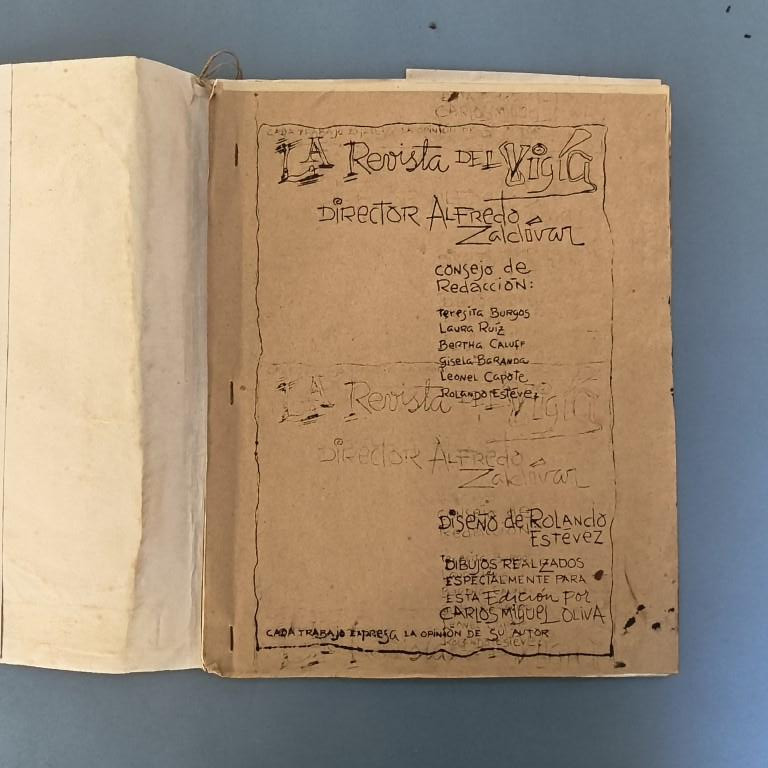 LA Revista DEL Vigía
DIRECTOR ALFREDO
Zaldívar
CONSEJO de
Redacción:
Teresita BURGOS
LAURA RUIZ
BERTHA CALUFF
Gisela BARANDA
LEONEL CAPOTE
ROLANDO ESTÉVEZ
LA Revista DEL Vigía
DIRECTOR ALFREDO
Zaldívar
DISEÑO de ROLANDO
ESTÉVEZ
DIBUJOS REALIZADOS
ESPECIALMENTE PARA
ESTA Edición Por
CARLOS MIGUEL OLIVA
CADA TRABAJO EXPRESA LA OPINIÓN DE SU AUTOR